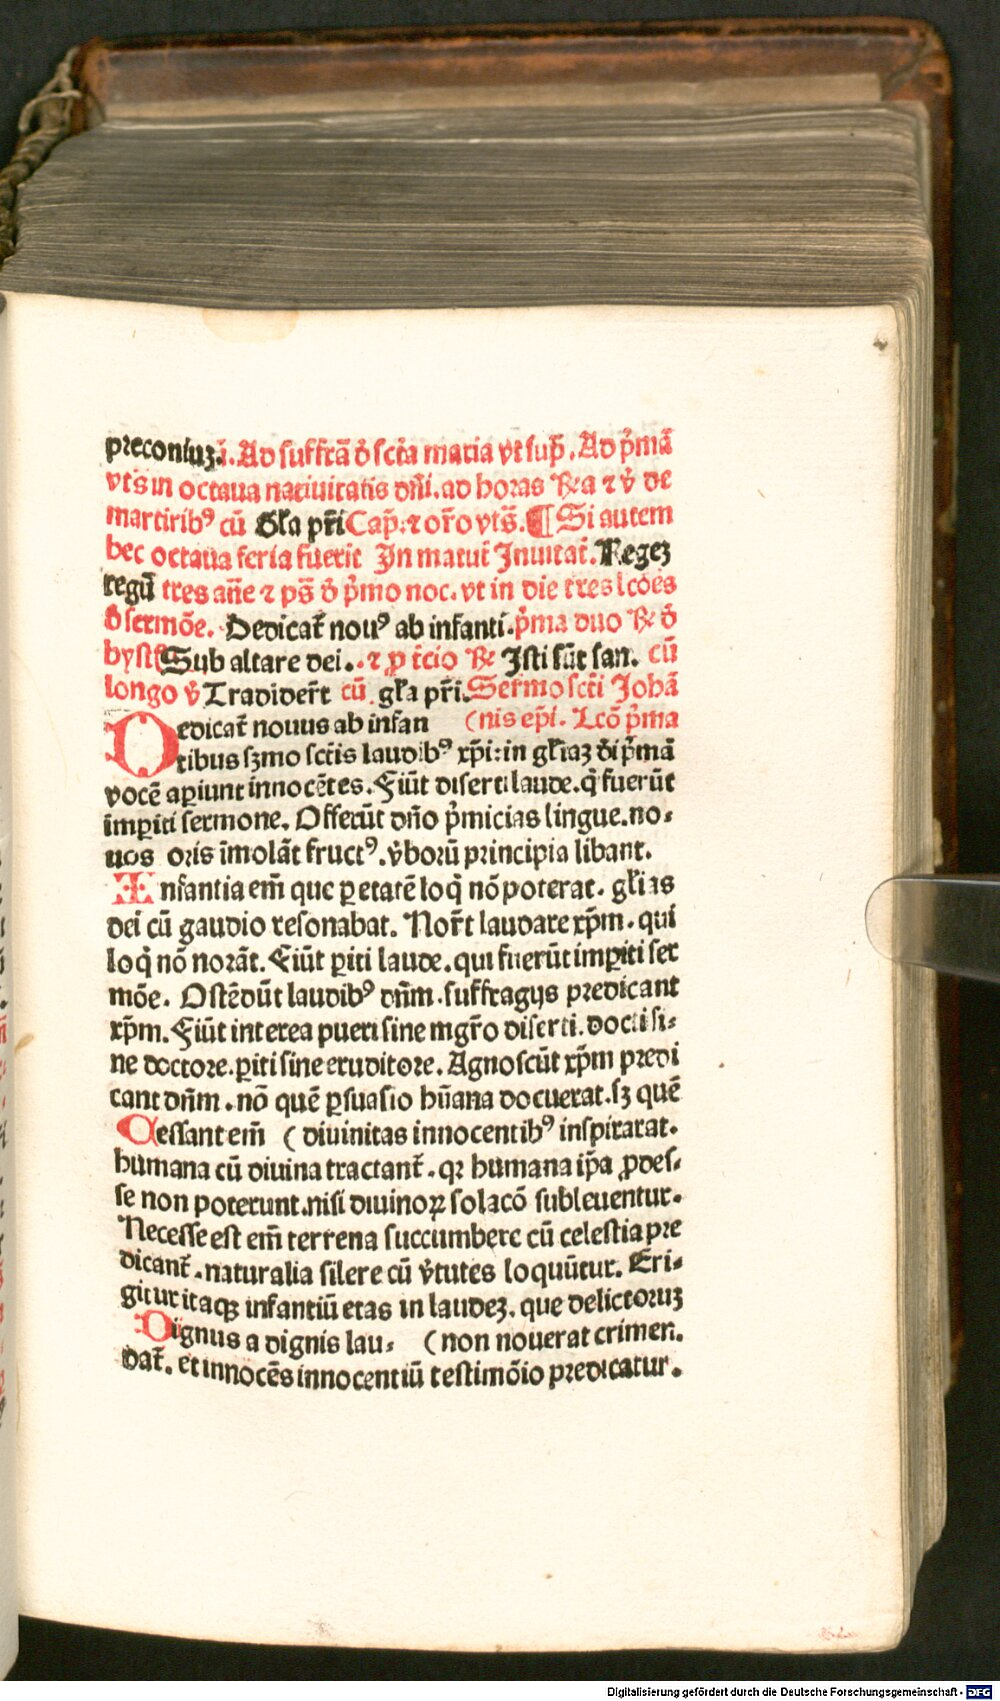 preconiuꝫ.i. Ad suffrã ð scta maria vt sup̃. Ad p̃mã
vts in octaua natiuitatis dñi. ad horas ℞a ⁊ v̾ de
martirib⁹ cũ Gl̃a pr̃i Cap̃. ⁊ or̃o vts̃. ¶ Si autem
hec octaua feria fuerit In matut̃ Inuitat̃. Regeꝫ
regũ tres añe ⁊ ps̃ ð p̃mo noc. vt in die tres lcões
ð sermõe. Dedicat̃ nou⁹ ab infanti. p̃ma duo ℞ ð
hyst Sub altare dei. ⁊ ꝓ tĩcio ℞ Isti sũt san. cũ
longo v̾ Tradider̃t cũ gl̃a pr̃i. Sermo scti Johã
Dedicat̃ nouus ab infan (nis ep̃i. Lcõ p̃ma
tibus sꝫmo sctis laudib⁹ xp̃i: in gl̃iaꝫ di p̃mã
vocẽ aꝑiunt innocẽtes. Fiũt diserti laude. q̃ fuerũt
imꝑiti sermone. Offerũt dño p̃micias lingue. no⸗
uos oris imolãt fruct⁹. v̾borũ principia libant.
Infantia em̃ que ꝑ etatẽ loq̃ nõ poterat. gl̃ias
dei cũ gaudio resonabat. Nor̃t laudare xp̃m. qui
loq̃ nõ norãt. Fiũt ꝑiti laude. qui fuerũt imꝑiti ser
mõe. Ostẽdũt laudib⁹ dñm. suffragijs predicant
xp̃m. Fiũt interea pueri sine mgr̃o diserti. docti si⸗
ne doctore. ꝑiti sine eruditore. Agnoscũt xp̃m predi
cant dñm. nõ quẽ ꝑsuasio hũana docuerat. sꝫ quẽ
Cessant em̃ ( diuinitas innocentib⁹ inspirarat.
humana cũ diuina tractant̃. qꝛ humana ip̃a ꝓdes⸗
se non poterunt. nisi diuinoꝝ solacõ subleuentur.
Necesse est em̃ terrena succumbere cũ celestia pre
dicant̃. naturalia silere cũ v̾tutes loquũtur. Eri⸗
gitur itaqꝫ infantiũ etas in laudeꝫ. que delictoruꝫ
Dignus a dignis lau⸗ ( non nouerat crimen.
dat̃. et innocẽs innocentiũ testimõio predicatur.
Digitalisierung gefördert durch die Deutsche Forschungsgemeinschaft - DFG